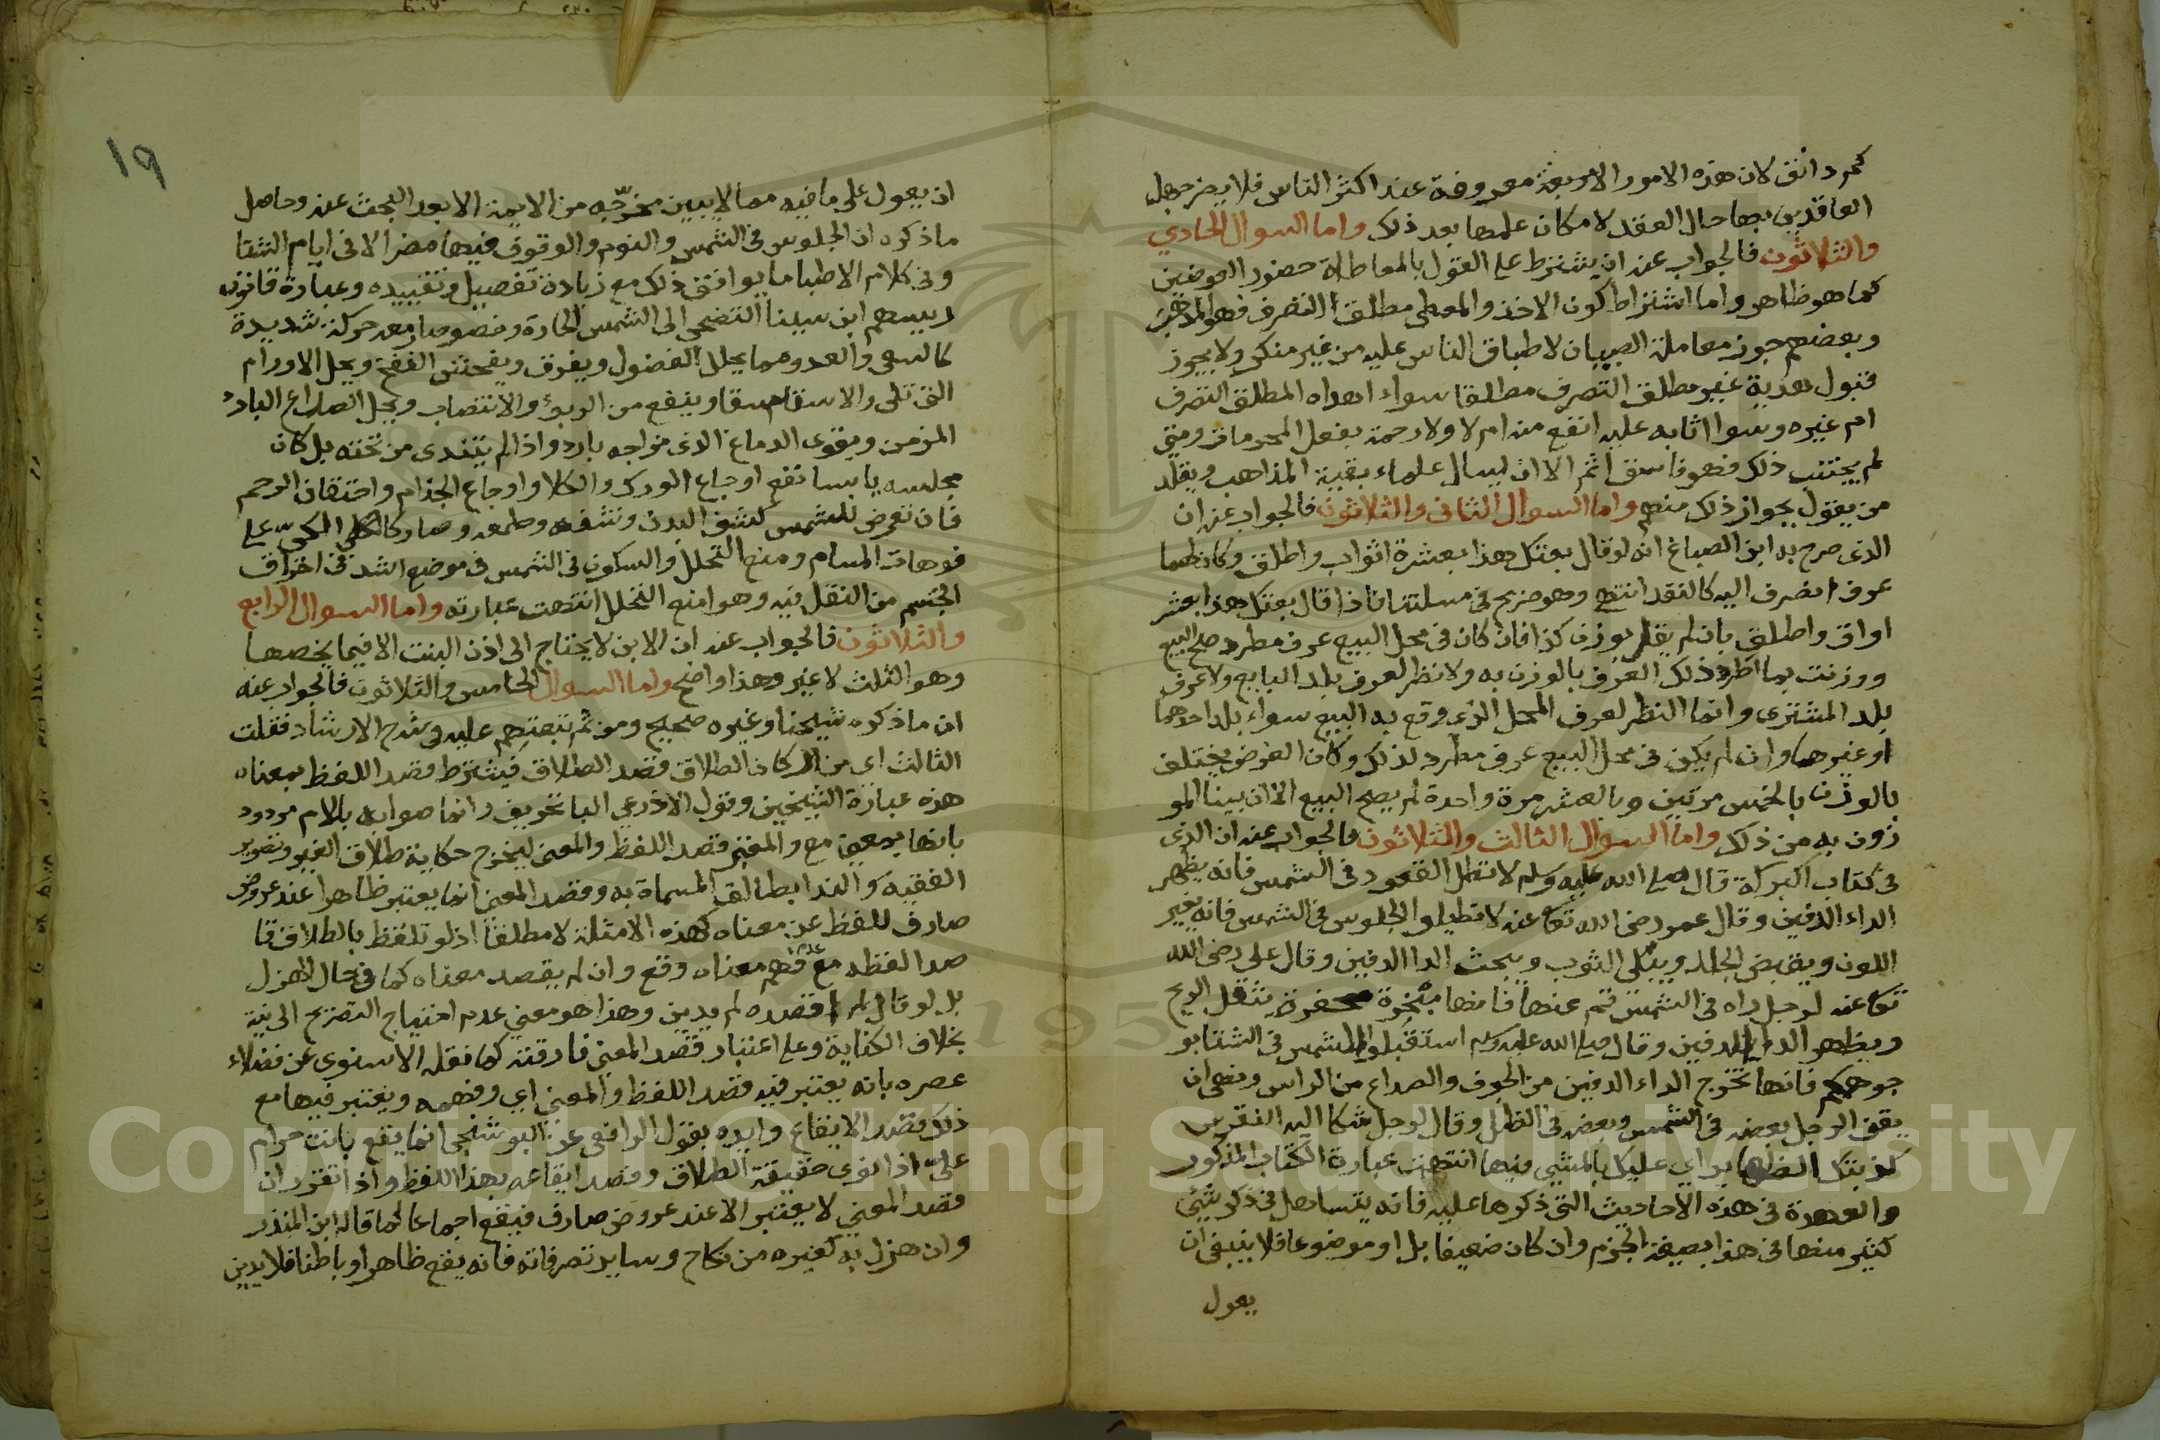 كجرد انق لان هذه الامور الاربعة معروفة عند اكثر الناس فلا يضر جهل
العاقدين بها حال العقد لامكان علمها بعد ذلك واما السوال الحادي
والثلاثون فالجواب عنه ان يشترط على القول بالمعاطاة حضور العوضين
كما هو ظاهر واما اشتراط كون الاخذ والمعطي مطلق التصرف فهو المذهب
وبعضهم جوز معاملة الصبيان لاطباق الناس عليه من غير منكر ولا يجوز
قبول هدية غير مطلق التصرف مطلقا سواء اهداه المطلق التصرف
ام غيره وسوا اثابه عليه انفع منه ام لا ولا رحمة بفعل المحرمات ومتى
لم يجتنب ذلك فهو فاسق اثم الا ان يسال علماء بقية المذاهب ويقلد
من يقول بجواز ذلك منهم واما السوال الثاني والثلاثون فالجواب عنه ان
الذي صرح به ابن الصباغ انه لو قال بعتك هذا بعشرة اثواب واطلق وكان لهما
عرف انصرف اليه كالنقد انتهى وهو صريح في مسلتنا فاذا قال بعتك هذا بعشر
اواق واطلق بان لم يقل بوزن كذا فان كان في محل البيع عرف مطرد صح البيع
ووزنت بما اطرد ذلك العرف بالوزن به ولا نظر لعرف بلد البايع ولا عرف
بلد المشتري وانما النظر لعرف المحل الذي وقع به البيع سواء بلد احدهما
او غيرهما وان لم يكن في محل البيع عرف مطرد لذلك وكان الغرض يختلف
بالوزن بالخمس مرتين وبالعشر مرة واحدة لم يصح البيع الا ان بينا المو
زون به من ذلك واما السوال الثالث والثلاثون فالجواب عنه ان الذي
في كتاب البركة قال صلى الله عليه وسلم لا تطل القعود في الشمس فانه يظهر
الداء الدفين وقال عمر رضي الله تع عنه لا تطيلوا الجلوس في الشمس فانه يغير
اللون ويقبض الجلد ويبلى الثوب ويبحث الدا الدفين وقال علي رضي الله
تع عنه لرجل راه في الشمس قم عنها فانها مبخرة مجفرة تثقل الريح
وتظهر الداء الدفين وقال صلى الله عليه وسلم استقبلوا الشمس في الشتا بو
جوهكم فانها تخرج الداء الدفين من الجوف والصداع من الراس ونهى ان
يقف الرجل بعضه في الشمس وبعضه في الظل وقال لرجل شكا اليه النقرس
كذبتك الظهاير اي عليك بالمشي فيها انتهت عبارة الكتاب المذكور
والعهدة في هذه الاحاديث التي ذكرها عليه فانه يتساهل في ذكر شيء
كثير منها في هذا بصيغة الجزم وان كان ضعيفا بل او موضوعا فلا ينبغي ان
يعول
١٩
ان يعول على ما فيه مما لا يبين مخرجه من الايمة الا بعد البحث عنه وحاصل
ما ذكره ان الجلوس في الشمس والنوم والوقوف فيها مضر الا في ايام الشتا
وفي كلام الاطبا ما يوافق ذلك مع زيادة تفصيل وتقييده وعبارة قانون
رييسهم ابن سينا التضحي الى الشمس الحارة وخصوصا مع حركة شديدة
كالسعي والعدو مما يحلل الفضول ويعرق ويفش النفخ ويحل الاورام
والاستسقا وينفع من الربو والانتصاب ويحل الصداع البارد
المزمن ويقوي الدماغ الذي مزاجه بارد واذا لم يتندى من تحته بل كان
مجلسه يابسا نفع اوجاع الورك والكلا واوجاع الجذام واختناق الرحم
فان تعرض للشمس كشف البدن ونشفه وحممه وصار كالكي على
فوهات المسام ومنع التحلل والسكون في الشمس في موضع اشد في احراق
الجسم من التنقل فيه وهو امنع التخلل انتهت عبارته واما السوال الرابع
والثلاثون فالجواب عنه ان الابن لا يحتاج الى اذن البنت الا فيما يخصها
وهو الثلث لا غير وهذا واضح واما السوال الخامس والثلاثون فالجواب عنه
ان ما ذكره شيخنا وغيره صحيح ومن ثم تبعتهم عليه في شرح الارشاد فقلت
الثالث اي من اركان الطلاق قصد الطلاق فيشترط قصد اللفظ بمعناه
هذه عبارة الشيخين وقول الاذرعي البا تحريف وانما صوابه بالام مردود
بانها بمعنى مع والمعنى قصد اللفظ والمعنى ليخرج حكاية طلاق الغير وتصوير
الفقيه والندا بطالق المسماة به وقصد المعنى انما يعتبر ظاهرا عند عروض
صارف للفظ عن معناه كهذه الامثلة لا مطلقا اذ لو تلفظ بالطلاق قا
صدا لفظه مع عدم فهم معناه وقع وان لم يقصد معناه كما في حال الهزل
بل لو قال لم اقصده لم يدين وهذا هو معنى عدم احتياج التصريح الى نية
بخلاف الكناية وعلى اعتبار قصد المعنى فارقته كما نقله الاسنوي عن فضلاء
عصره بانه يعتبر فيه قصد اللفظ والمعنى اي وفهمه ويعتبر فيها مع
ذلك قصد الايقاع وايده بقول الرافعي عن البوشنجي انما يقع بانت حرام
علي اذا نوى حقيقة الطلاق وقصد ايقاعه بهذا اللفظ واذا تقرر ان
قصد المعنى لا يعتبر الا عند عروض صارف فيقع اجماعا كما قاله ابن المنذر
وان هزل به كغيره من نكاح وساير تصرفاته فانه يقع ظاهرا وباطنا فلا يدين
Copyright © King Saud University
1957